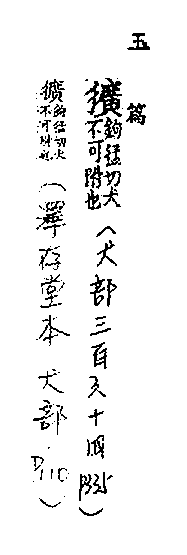 玉篇
獷鉤猛切犬不可附也(犬部三百六十四 P335)
獷鉤猛切犬不可附也(澤存堂本 犬部 P110)